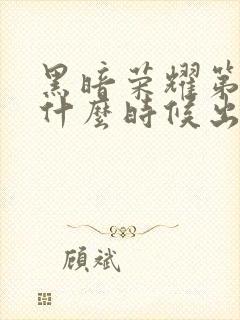 黑暗荣耀第
什麼時候出
顾斌